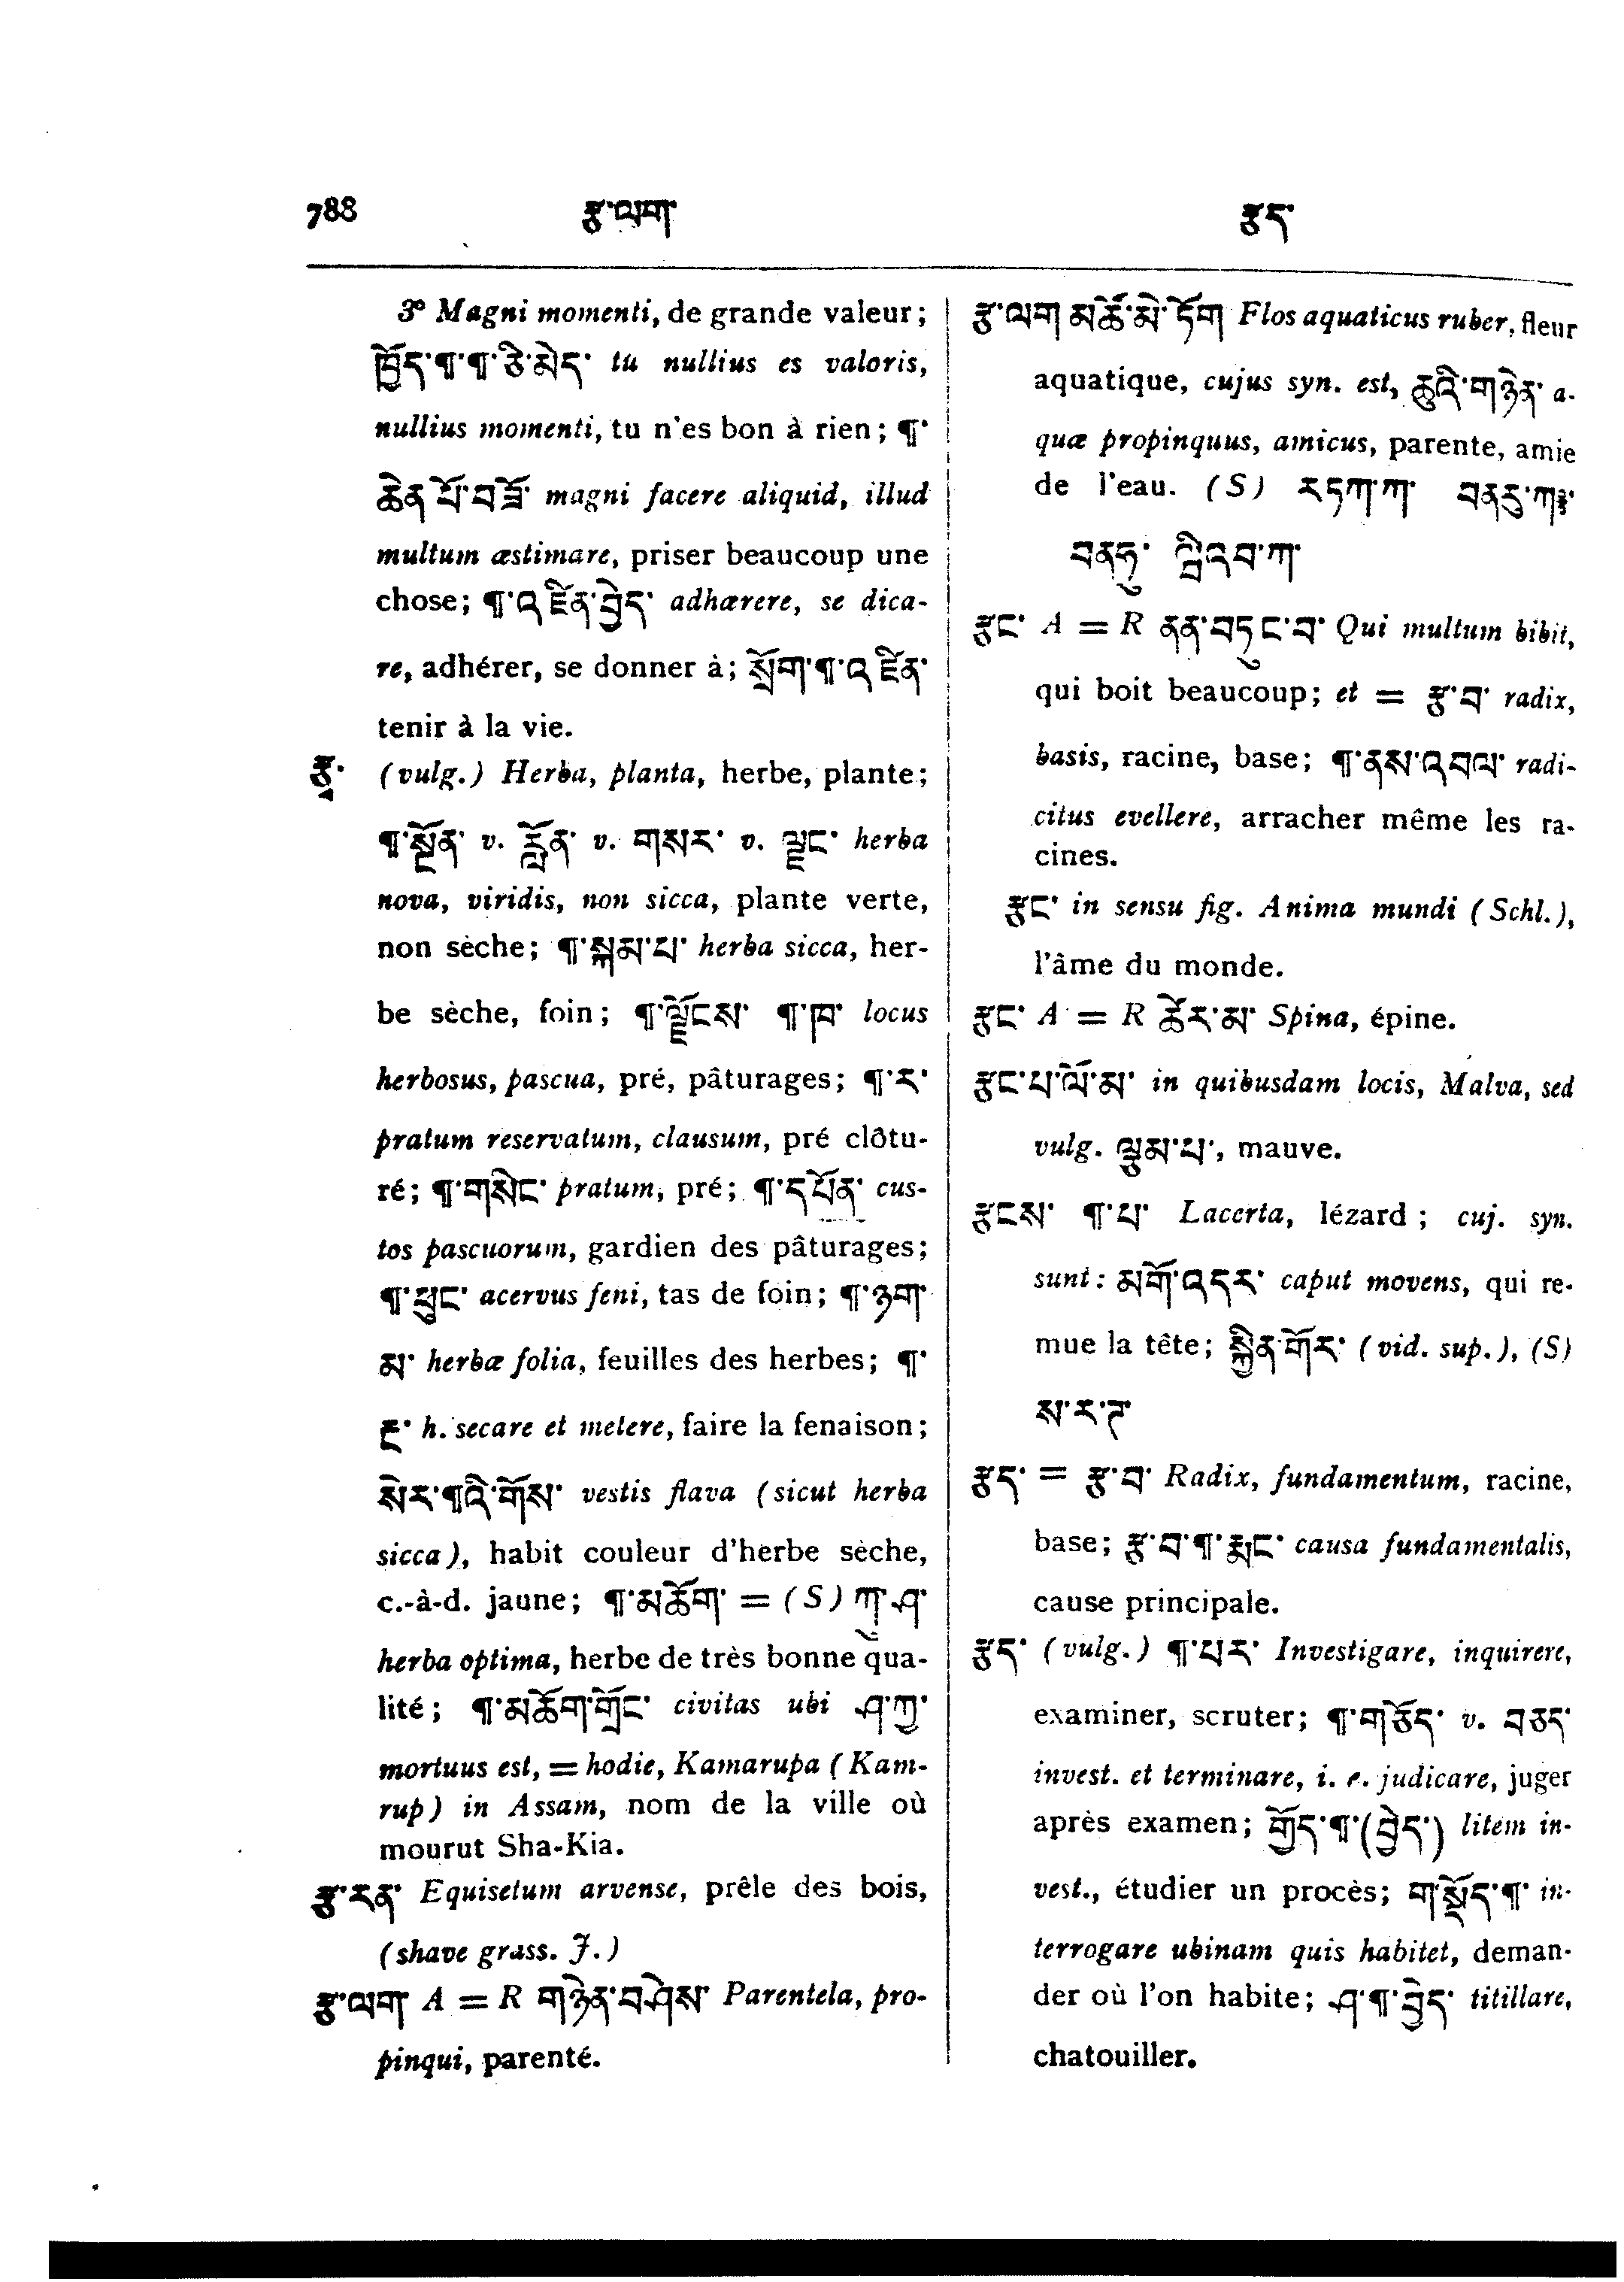 788 རྩ་ལག་ རྩད་
3º Magni momenti, de grande valeur;
ཁྱོད་¶་¶་ཅི་མེད་ tu nullius es valoris,
nullius momenti, tu n'es bon à rien; ¶་
ཆེན་པོ་བཟོ་ magni facere aliquid, illud
multum æstimare, priser beaucoup une
chose; ¶་འཛིན་བྱེད་ adhærere, se dica-
re, adhérer, se donner à; སྲོག་¶་འཛིན་
tenir à la vie.
རྩྭ་ (vulg.) Herba, planta, herbe, plante;
¶་སྔོན་ v. རློན་ v. གསར་ v. ལྗང་ herba
nova, viridis, non sicca, plante verte,
non sèche; ¶་སྐམ་པ་ herba sicca, her-
be sèche, foin; ¶་ལྗོངས་ ¶་ཁ་ locus
herbosus, pascua, pré, pâturages; ¶་ར་
pratum reservatum, clausum, pré clôtu-
ré; ¶་གསིང་ pratum, pré; ¶་དཔོན་ cus-
tos pascuorum, gardien des pâturages;
¶་ཕུང་ acervus feni, tas de foin; ¶་ཉག་
མ་ herbæ folia, feuilles des herbes; ¶་
རྔ་ h. secare et metere, faire la fenaison;
སེར་¶འི་གོས་ vestis flava (sicut herba
sicca), habit couleur d'herbe sèche,
c.-à-d. jaune; ¶་མཆོག་ = (S) ཀུ་ཤ་
herba optima, herbe de très bonne qua-
lité; ¶་མཆོག་གྲོང་ civitas ubi ཤ་ཀྱ་
mortuus est, = hodie, Kamarupa (Kam-
rup) in Assam, nom de la ville où
mourut Sha-Kia.
རྩ་རན་ Equisetum arvense, prêle des bois,
(shave grass. J.)
རྩ་ལག་ A = R གཉེན་བཤེས་ Parentela, pro-
pinqui, parenté.
རྩ་ལག མཚོ་མེ་ཏོག Flos aquaticus ruber, fleur
aquatique, cujus syn. est, ཆུའི་གཉེན་ a-
quæ propinquus, amicus, parente, amie
de l'eau. (S)
རྩང་ A = R ནན་བཏུང་བ་ Qui multum bibit,
qui boit beaucoup; et = རྩ་བ་ radix,
basis, racine, base; ¶་ནས་འབལ་ radi-
citus evellere, arracher même les ra-
cines.
རྩང་ in sensu fig. Anima mundi (Schl.),
l'âme du monde.
རྩང་ A = R ཚེར་མ་ Spina, épine.
རྩང་པ་ལོ་མ་ in quibusdam locis, Malva, sed
vulg. ལྕམ་པ་, mauve.
རྩངས་ ¶་པ་ Lacerta, lézard; cuj. syn.
sunt: མགོ་འདར་ caput movens, qui re-
mue la tête; སྐྱིན་གོར་ (vid. sup.), (S)
ས་ར་ཊ་
རྩད་ = རྩ་བ་ Radix, fundamentum, racine,
base; རྩ་བ་¶་རྨང་ causa fundamentalis,
cause principale.
རྩད་ (vulg.) ¶་པར་ Investigare, inquirere,
examiner, scruter; ¶་གཅོད་ v. བཅད་
invest. et terminare, i. e. judicare, juger
après examen; གྱོད་¶་(བྱེད་) litem in-
vest., étudier un procès; གསྡོད་¶་ in-
terrogare ubinam quis habitet, deman-
der où l'on habite; ཤ་¶་བྱེད་ titillare,
chatouiller.